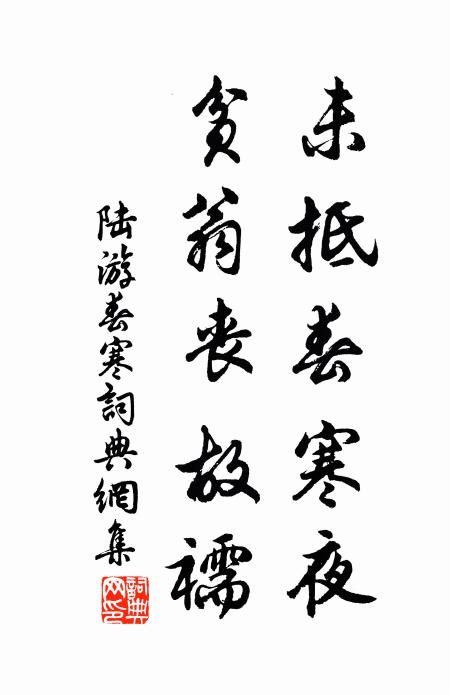 未抵春寒夜
貧翁喪故襦
陸游春寒詞典網集
詞典网印